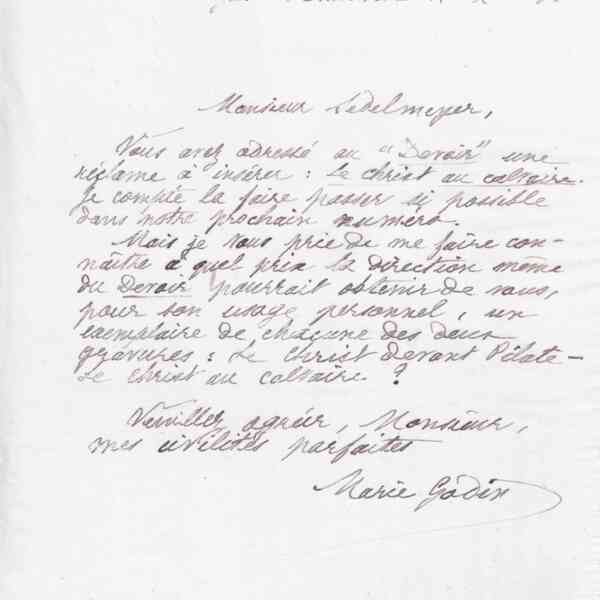 Monsieur Sedelmeyer,
Vous avez adressé au "Devoir" une
réclame à insérer : Le Christ au calvaire.
Je compte la faire passer si possible
dans notre prochain numéro.
Mais je vous prie de me faire con-
naître à quel prix la direction même
du Devoir pourrait obtenir de vous,
pour son usage personnel, un
exemplaire de chacune des deux
gravures : Le Christ devant Pilate -
Le Christ au calvaire. ?
Veuillez agréer, Monsieur,
mes civilités parfaites
Marie Godin